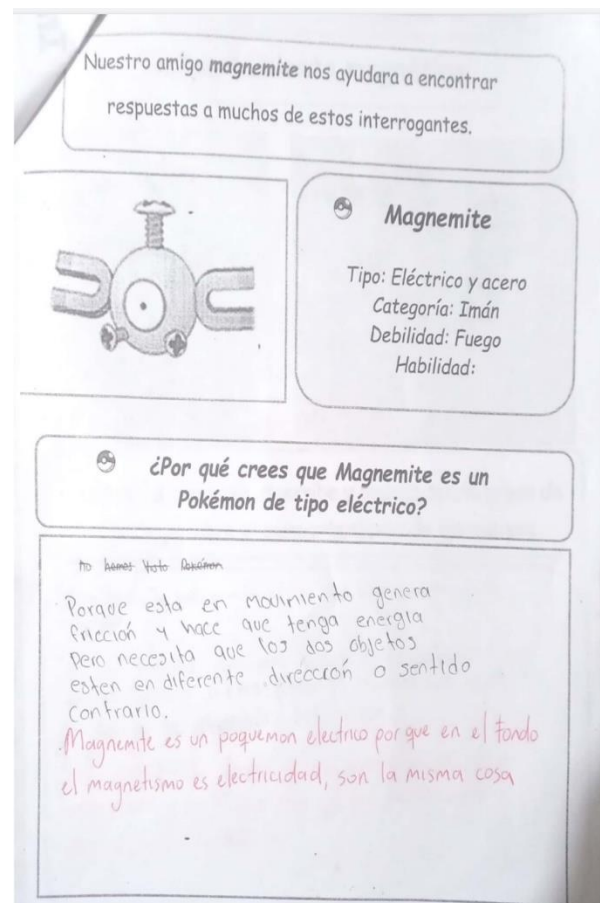 Nuestro amigo magnemite nos ayudara a encontrar
respuestas a muchos de estos interrogantes.
Magnemite
Tipo: Eléctrico y acero
Categoría: Imán
Debilidad: Fuego
Habilidad:
¿Por qué crees que Magnemite es un
Pokémon de tipo eléctrico?
no hemos visto Pokémon
Porque esta en movimiento genera
fricción y hace que tenga energia
Pero necesita que los dos objetos
esten en diferente dirección o sentido
contrario.
Magnemite es un poquemon electrico por que en el fondo
el magnetismo es electricidad, son la misma cosa